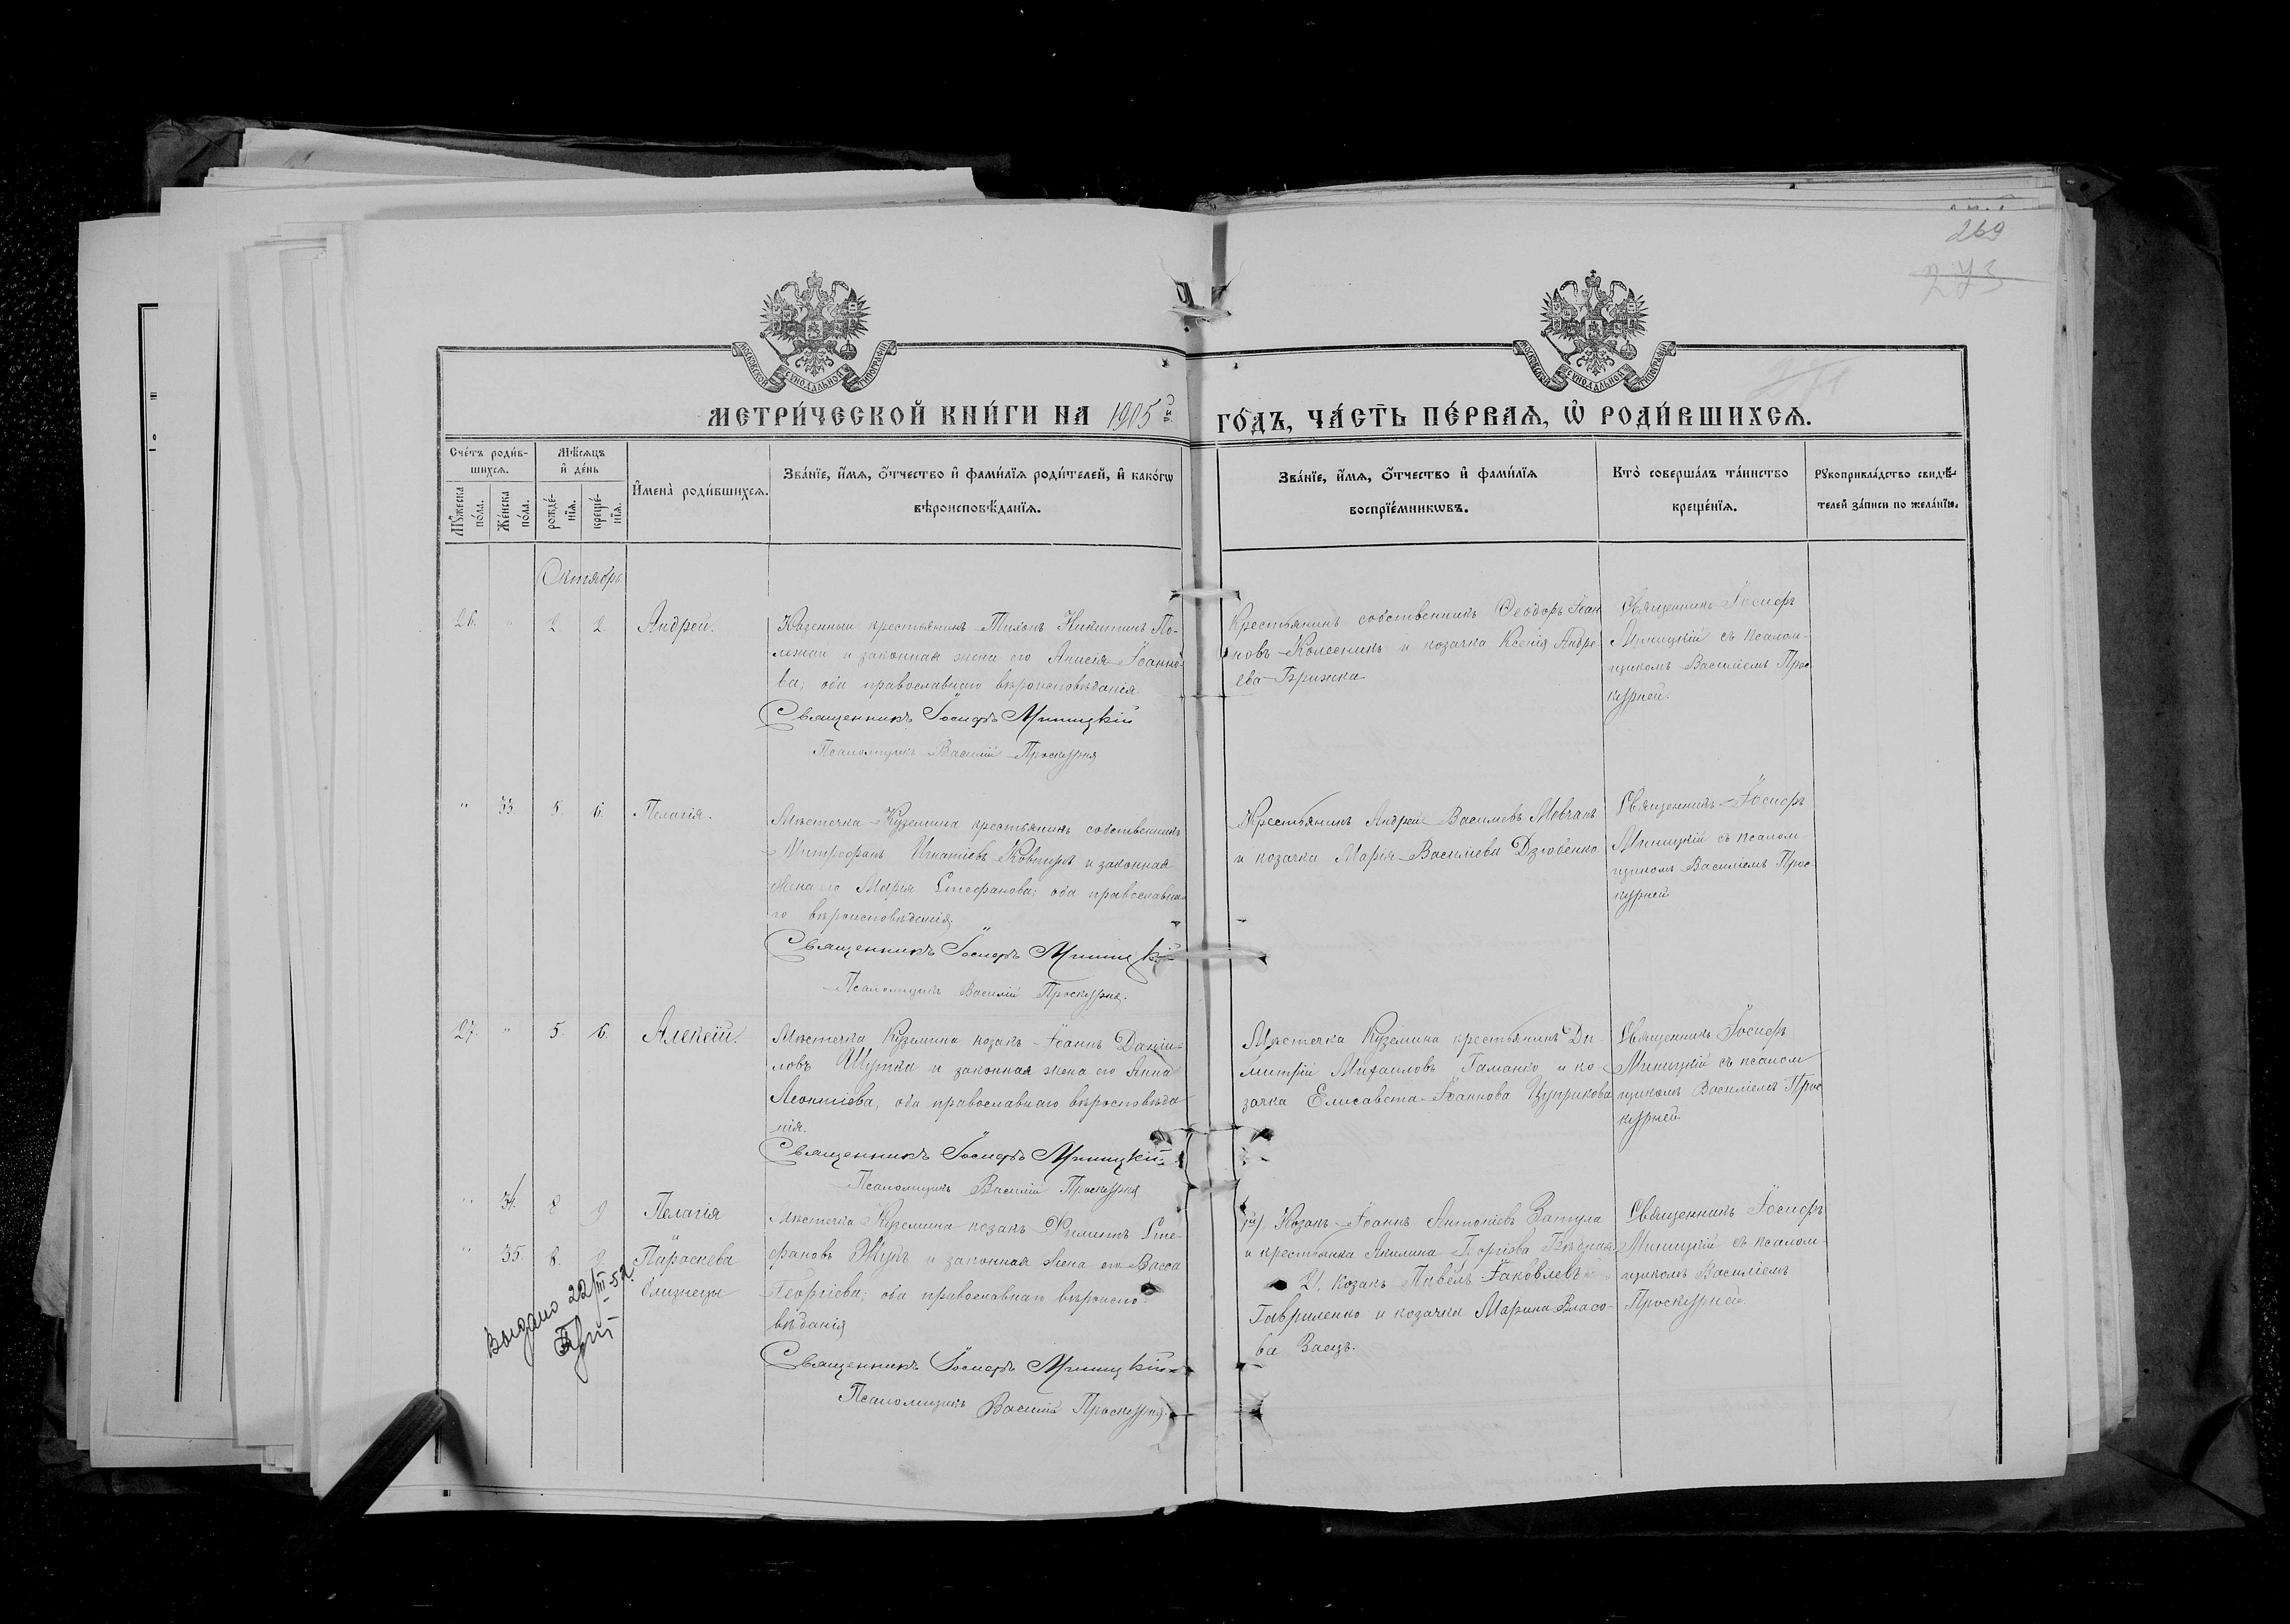 269
273
МОСКОВСКОЙ СΥНОДАЛЬНОЙ ТИПОГРАФІИ
МОСКОВСКОЙ СΥНОДАЛЬНОЙ ТИПОГРАФІИ
МЕТРИ́ЧЕСКОЙ КНИ́ГИ НА 1905й ГО́ДЪ, ЧА́СТЬ ПЕ́РВАѦ, Ѡ҆ РОДИ́ВШИХСѦ.
Сче́тъ роди́в-
шихсѧ.
Мѣ́сѧцъ
и҆ де́нь
Мꙋ́жеска
по́ла.
Же́нска
по́ла.
рожде́-
нїѧ.
креще́-
нїѧ.
И҆мена̀ роди́вшихсѧ.
Зва́нїе, и҆́мѧ, ѻ҆́тчество и҆ фами́лїѧ роди́телей, и҆ како́гѡ
вѣроисповѣ́данїѧ.
Зва́нїе, и҆́мѧ, ѻ҆́тчество и҆ фами́лїѧ
воспрїе́мникѡвъ.
Кто̀ соверша́лъ та́инство
креще́нїѧ.
Рꙋкоприкла́дство свидѣ́-
телей за́писи по жела́нїю.
Октябрь
26. " 2 2 Андрей.
Казенный крестьянинъ Тихонъ Никитинъ По-
лежай и законная жена его Анисія Іоанно-
ва; оба православнаго вѣроисповѣданія
Священникъ Іосифъ Миницкій
Псаломщикъ Василій Проскурня
Крестьянинъ собственникъ Ѳеодоръ Іоан
новъ Колесникъ и козачка Ксенія Андре-
ева Брижка
Священникъ Іосифъ
Миницкій съ псалом-
щикомъ Василіемъ Прос
курней.
" 33. 5. 6. Пелагія.
Мѣстечка Куземина крестьянинъ собственникъ
Митрофанъ Игнатіевъ Ковтунъ и законная
жена его Марія Стефанова; оба православна-
го вѣроисповѣданія.
Священникъ Іосифъ Миницкій
Псаломщикъ Василій Проскурня.
Крестьянинъ Андрей Василіевъ Мовчанъ
и козачка Марія Василіева Дзюбенко
Священникъ Іосифъ
Миницкій съ псалом-
щикомъ Василіемъ Прос
курней
27. " 5. 6. Алексій.
Мѣстечка Куземина козакъ Іоаннъ Даніи-
ловъ Шутка и законная жена его Анна
Леонтіева, оба православнаго вѣросповѣда
нія.
Священникъ Іосифъ Миницкій
Псаломщикъ Василій Проскурня
Мѣстечка Куземина крестьянинъ Ди-
митрій Михаиловъ Гаманко и ко-
зачка Елисавета Іоаннова Цуприкова
Священникъ Іосифъ
Миницкій съ псалом
щикомъ Василіемъ Прос
курней
" 34. 8 9 Пелагія
" 35. 8. 9 Параскева
близнецы
Мѣстечка Куземина козакъ Филиппъ Сте-
фановъ Жукъ и законная жена его Васса
Георгіева; оба православнаго вѣроиспо-
вѣданія
Священникъ Іосифъ Миницкій
Псаломщикъ Василій Проскурня.
1й) Козакъ Іоаннъ Антоніевъ Затула
и крестьянка Акилина Георгіева Бѣдная
2, козакъ Павелъ Іаковлевъ
Гавриленко и козачка Марина Власо-
ва Заецъ.
Священникъ Іосифъ
Миницкій съ псалом-
щикомъ Василіемъ
Проскурней.
Выдано 22/III-52.